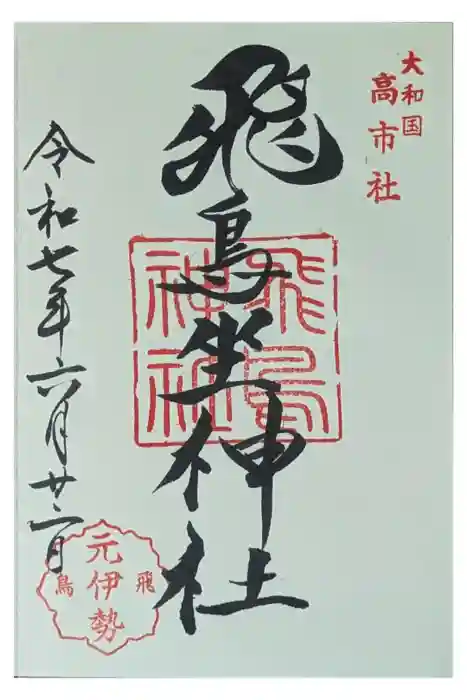 大和国
高市社
飛鳥坐神社
飛鳥
神社
令和七年六月廿二日
元伊勢
飛鳥